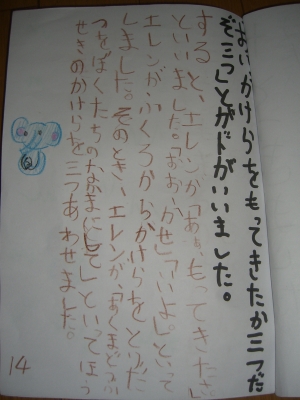 はいかけらをもってきたか三つだ
ぞ三つ」とガドがいいました。
すると、エレンが「ああ、もってきたさ」
といいました。「おお、かせ」「いいよ。」といって
エレンがふくろからかけらをとりだ
しました。そのとき、エレンが、「あくまどう
つをぼくたちのなかまにして」といってほう
せきのかけらを三つあわせました。
14